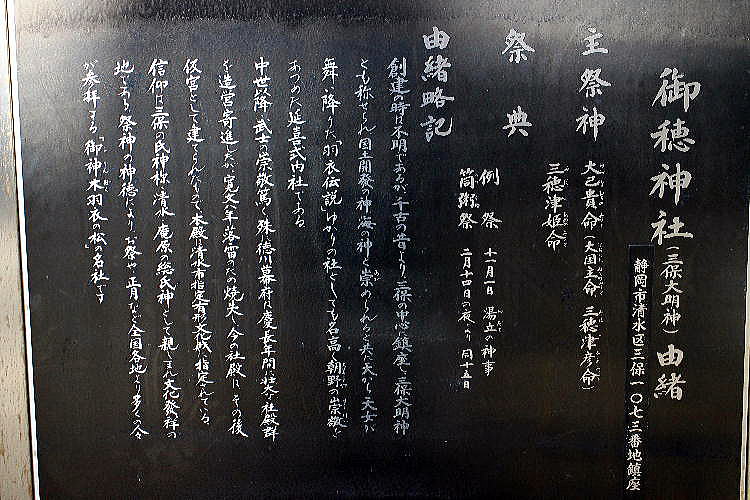 御穂神社（三保大明神）由緒
静岡市清水区三保一〇七三番地鎮座
主祭神　大己貴命（大国主命　三穂津彦命）
三穂津姫命
祭典　例祭　十一月一日　湯立の神事
筒粥祭　二月十四日の夜より同十五日
由緒略記
創建の時は不明であるが、千古の昔より、三保の中心に鎮座し、三保大明神
とも称せられ国土開發の神、海の神と崇められると共に天から天女が
舞い降りた「羽衣伝説」ゆかりの社としても名高く朝野の崇敬を
あつめた延喜式内社である。
中世以降、武士の崇敬篤く殊に徳川幕府は慶長年間、壮大な社殿群
を造営寄進したが寛文八年落雷のため焼失、今の社殿はその後
仮宮として建てられたもので本殿は清水市指定有形文化財に指定されている。
信仰は三保の氏神様、清水・庵原の総氏神として親しまれ文化發祥の
地であり祭神の神徳により、お祭や正月など全国各地より多くの人々
が参拝する「御神木羽衣の松」の名社です